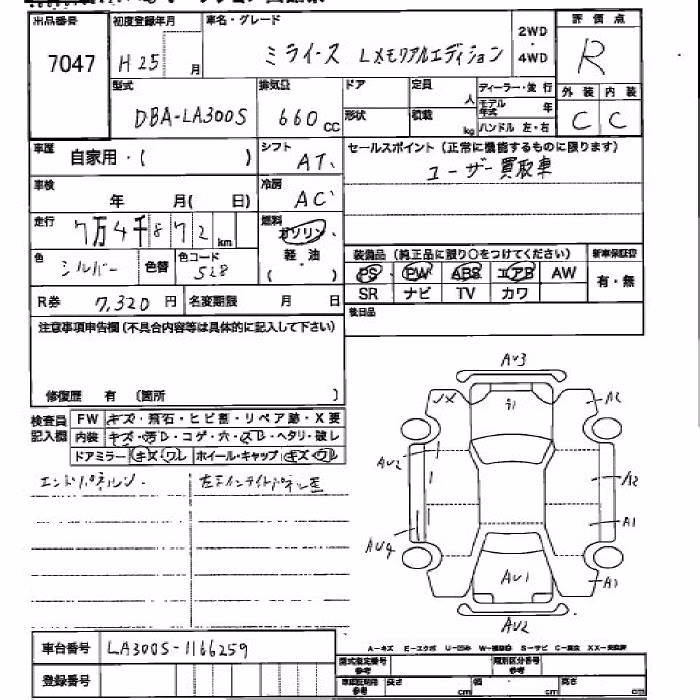 出品番号 初度登録年月 車名・グレード 2WD 評価点
7047 H25 月 ミライース Lメモリアルエディション ・ 4WD R
型式 排気量 ドア 定員 人 ディーラー・並行 外装 内装
DBA-LA300S 660cc 形状 積載 kg モデル年式 年 C C
ハンドル 左・右
車歴 自家用・( ) シフト AT セールスポイント (正常に機能するものに限ります)
ユーザー買取車
車検 年 月( 日) 冷房 AC
走行 7万4千872km 燃料 ガソリン
色 シルバー 色替 色コード S28 軽・油 ( ) 装備品 (純正品に限り○をつけてください) 新車保証書
PS PW ABS エアB AW 有・無
R券 7,320円 名変期限 月 日 SR ナビ TV カワ
注意事項申告欄(不具合内容等は具体的に記入して下さい) 後日品
修復歴 有 (箇所 )
検査員記入欄 FW キズ・飛石・ヒビ割・リペア跡・X要
内装 キズ・汚レ・コゲ・穴・スレ・ヘタリ・破レ
ドアミラー キズ・ワレ ホイール・キャップ キズ・ワレ
エンドパネルソ
AV3
A2
AV2
A2
A1
AV4
A1
AV1
AV2
車台番号 LA300S-1166259
A-キズ E-エクボ U-凹み W-補修跡 S-サビ C-腐食 XX-交換済
登録番号 型式指定番号 参考 類別区分番号 参考
車庫証明用 参考 長さ cm 幅 cm 高さ cm